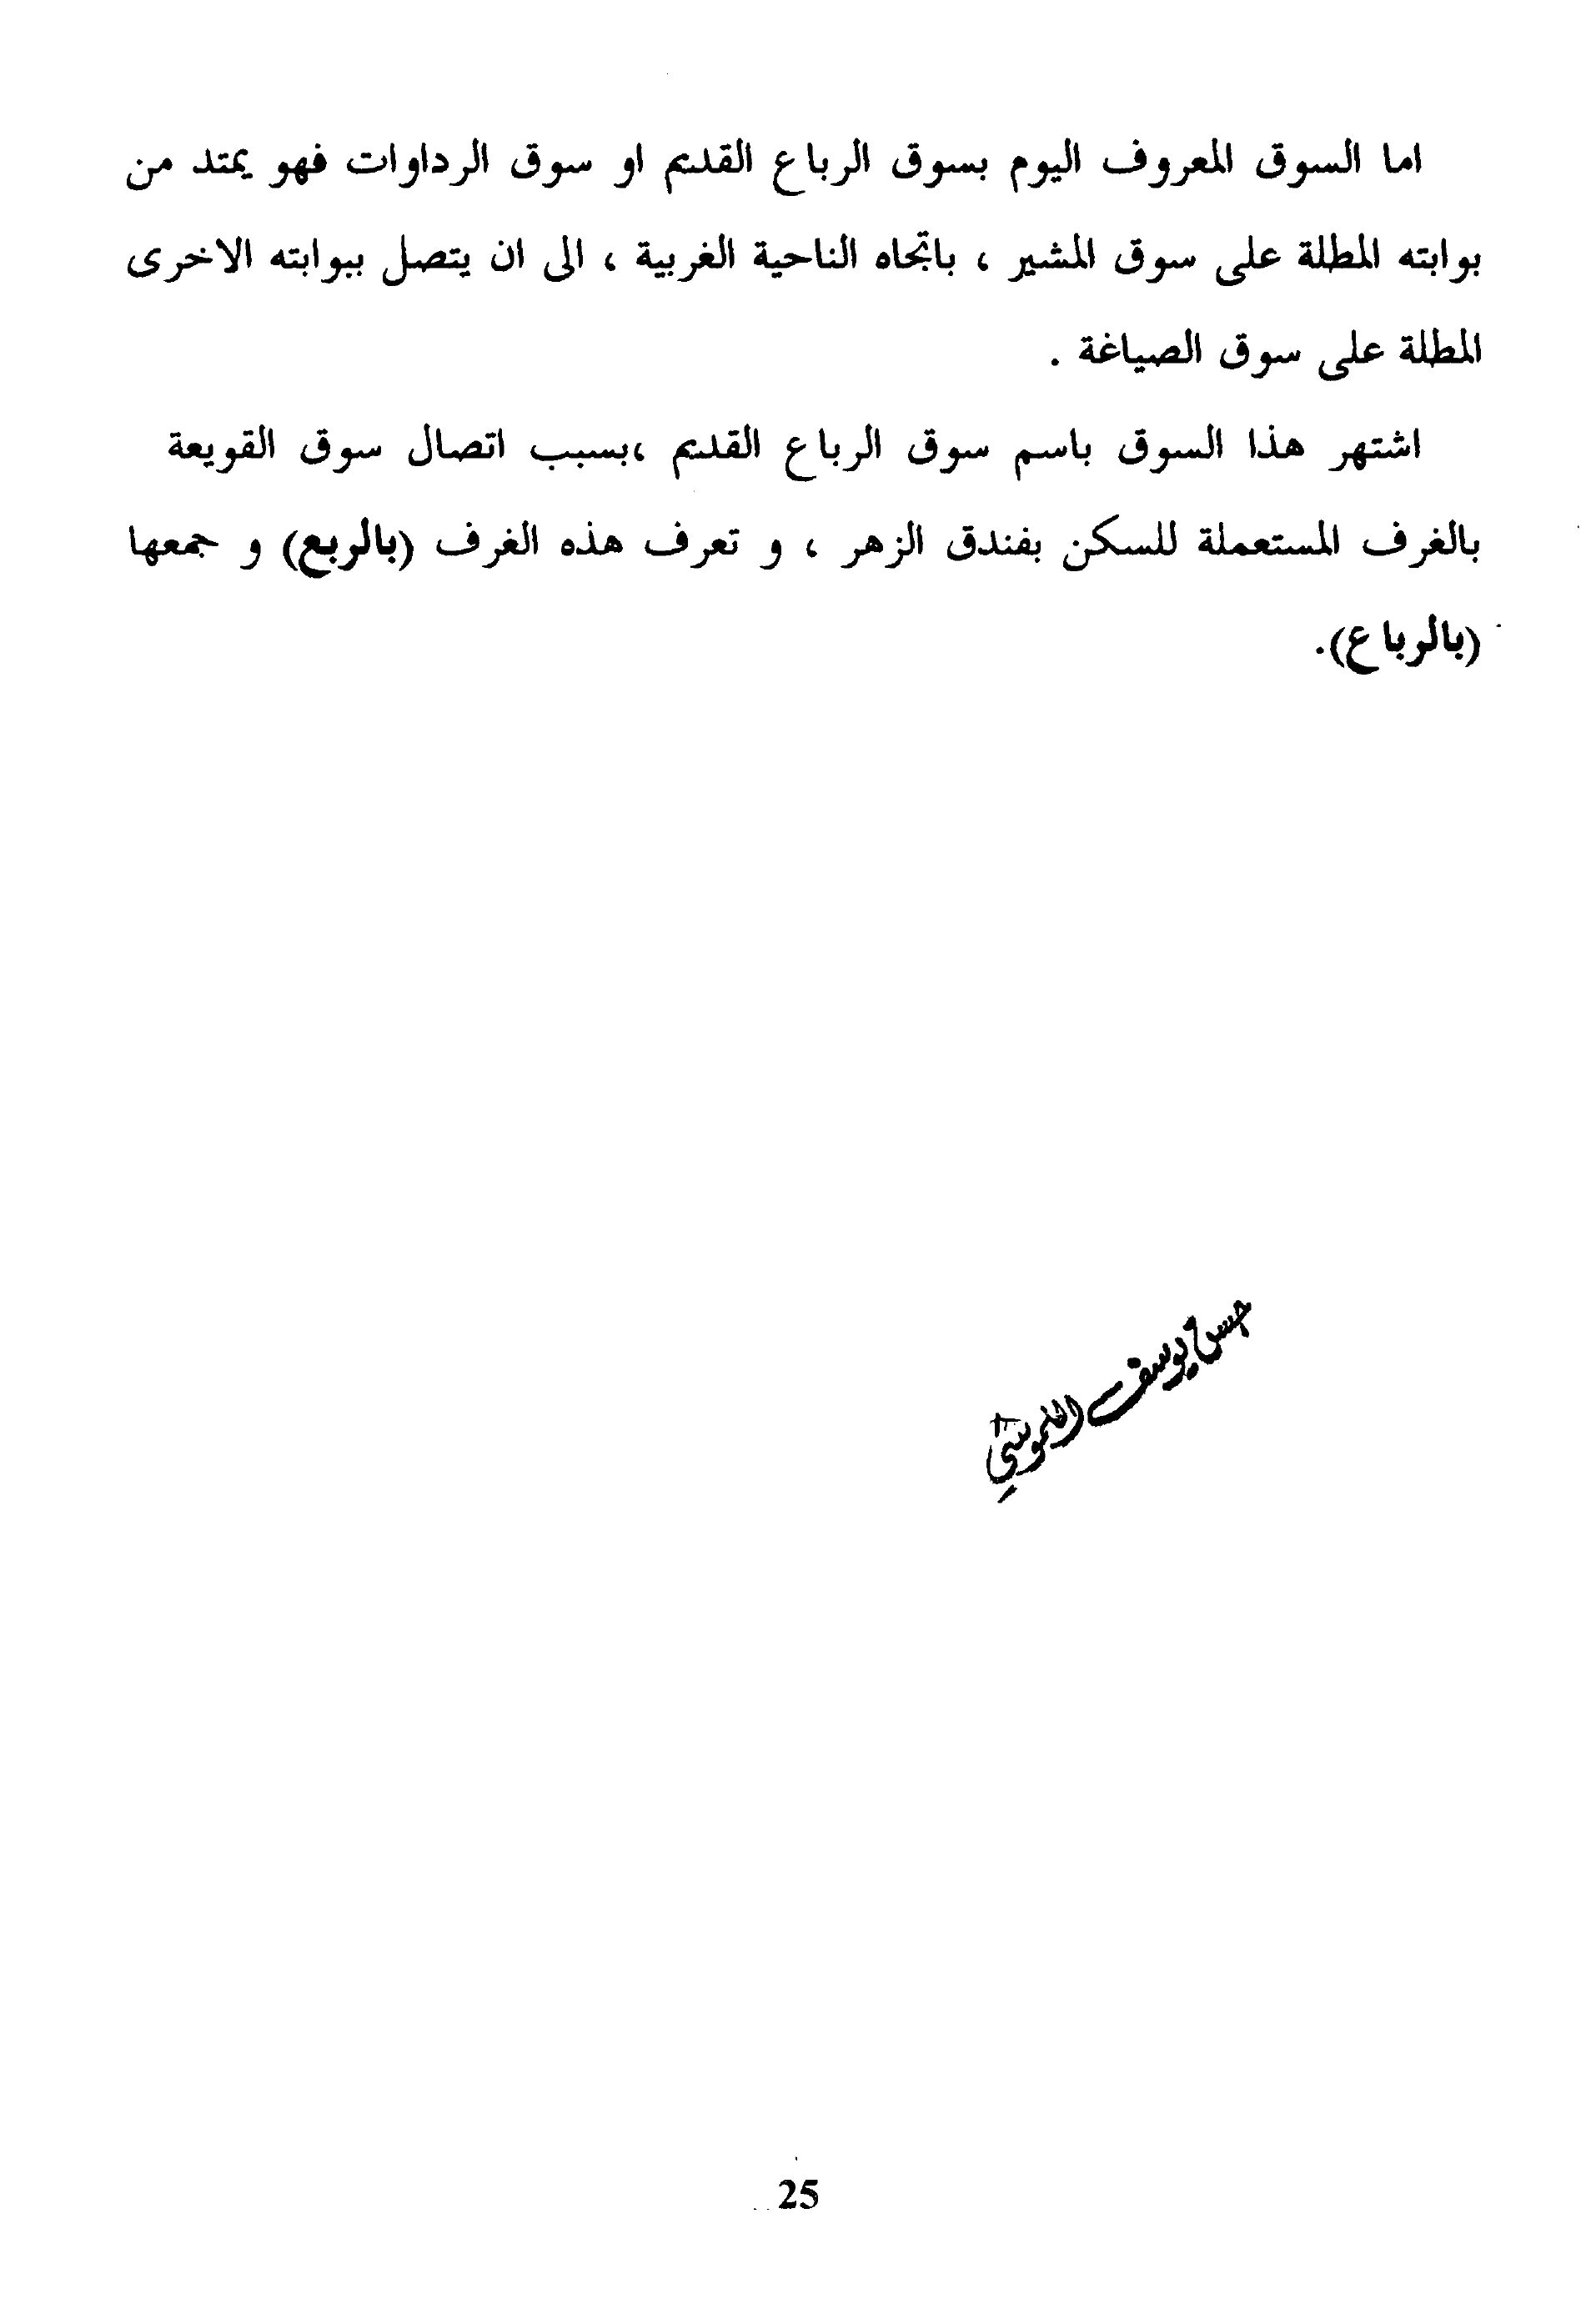 اما السوق المعروف اليوم بسوق الرباع القديم او سوق الرداوات فهو يمتد من
بوابته المطلة على سوق المشير ، باتجاه الناحية الغربية ، الى ان يتصل ببوابته الاخرى
المطلة على سوق الصياغة .
اشتهر هذا السوق باسم سوق الرباع القديم ،بسبب اتصال سوق القويعة
بالغرف المستعملة للسكن بفندق الزهر ، و تعرف هذه الغرف (بالربع) و جمعها
(بالرباع).
حسن يوسف
25